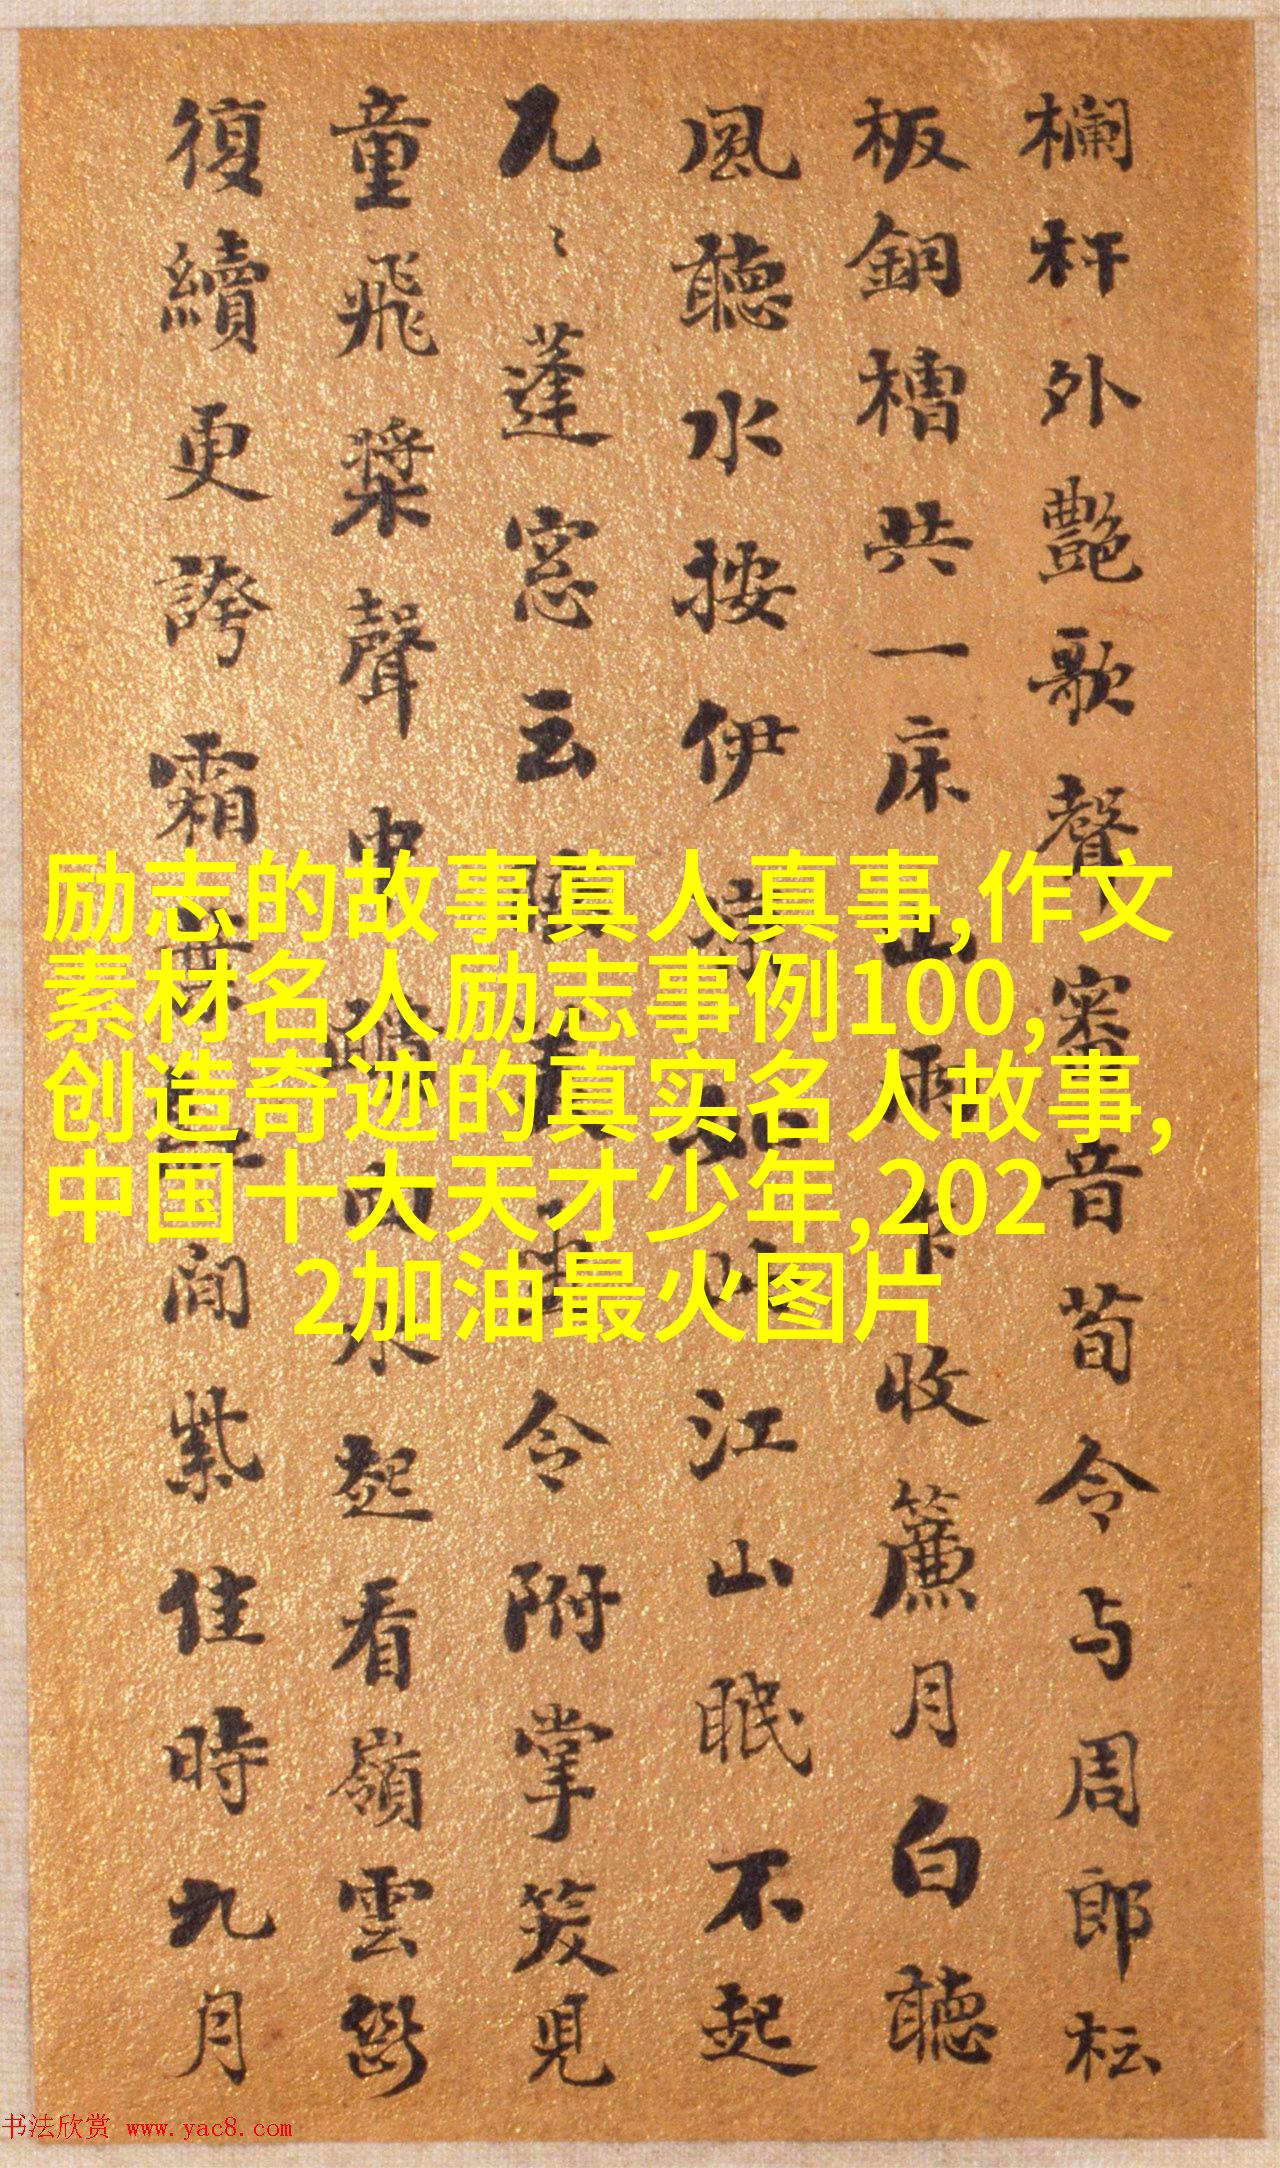 欄杆外艷歌聲察音荀令与周郎松
板銅槽共一床山雨乍收簾月白聽
風聽水按伊江山眠不起
蓬窓云令附掌笑見
童飛槳聲中面水起看嶺雲
復續更誇霜間紫佳時九月
励志的故事真人真事,作文
素材名人励志事例100,
创造奇迹的真实名人故事,
中国十大天才少年,202
2加油最火图片
书法欣赏 www.yac8.com